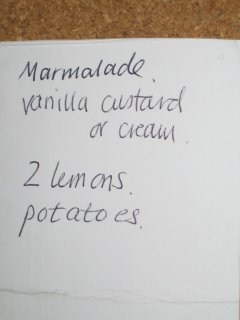 Marmalade.
vanilla custard
or cream.
2 lemons.
potatoes.